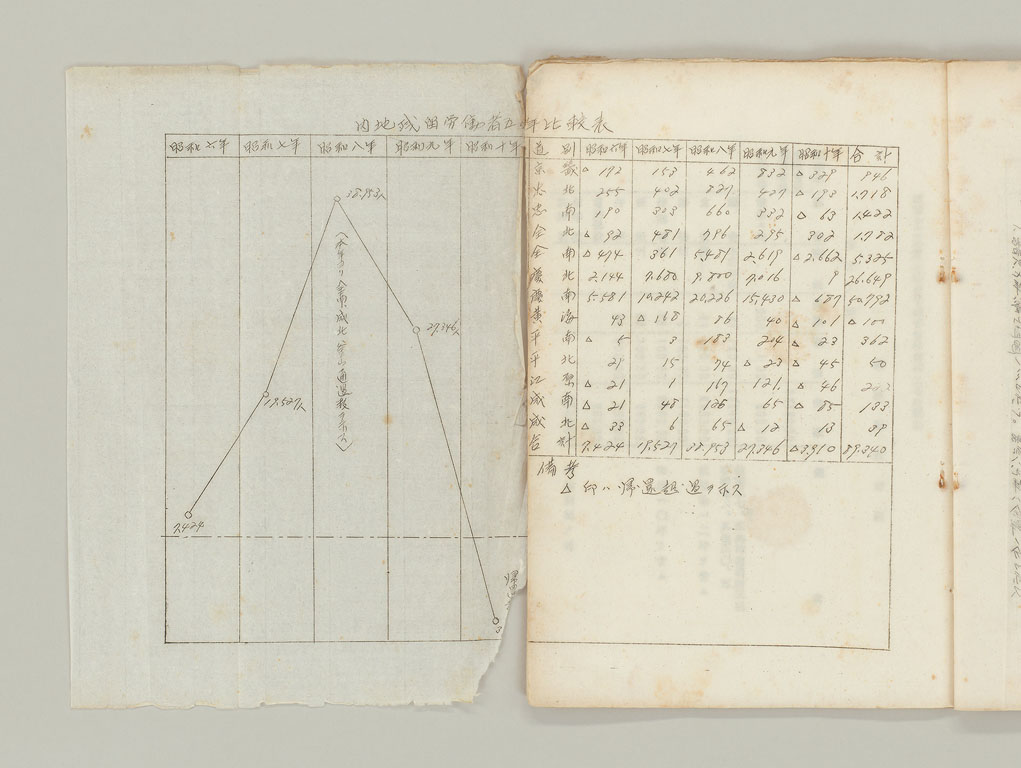 内地残留労働者五年比較表
昭和六年 昭和七年 昭和八年 昭和九年 昭和十年
38.953人
27.346人
19.527人
7.424
道別 昭和六年 昭和七年 昭和八年 昭和九年 昭和十年 合計
京畿 △192 153 462 832 △329 946
忠北 255 402 827 427 △193 1.718
忠南 190 303 660 332 △63 1.422
全北 △92 481 796 295 302 1.782
全南 △474 361 5.481 2.619 △2.662 5.325
慶北 2.144 7.680 9.800 7.016 9 26.649
慶南 5.581 10.242 20.226 15.430 △687 50.792
黄海 43 △168 86 40 △101 △100
平南 △5 3 183 204 △23 362
平北 29 15 74 △23 △45 50
江原 △21 1 167 121 △46
咸南 △21 48 126 65 △85 133
咸北 △33 6 65 △12 13 39
合計 7.424 19.527 38.953 27.346 △3.910 89.340
備考
△印ハ帰還超過ヲ示ス